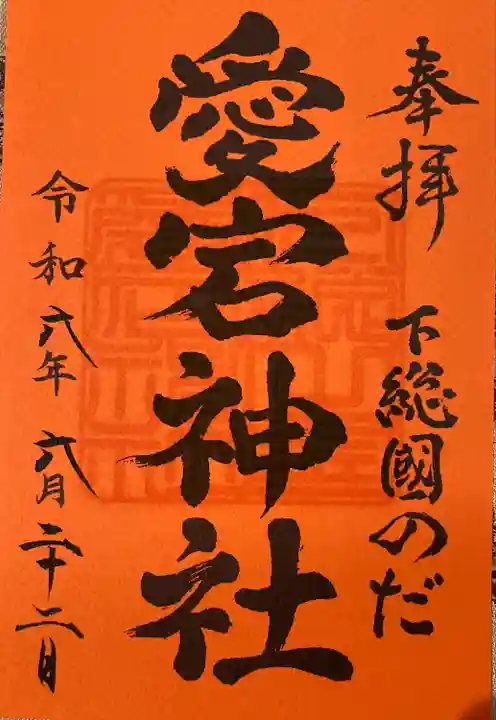 奉拝 下総國のだ
愛宕神社
令和六年 六月二十二日